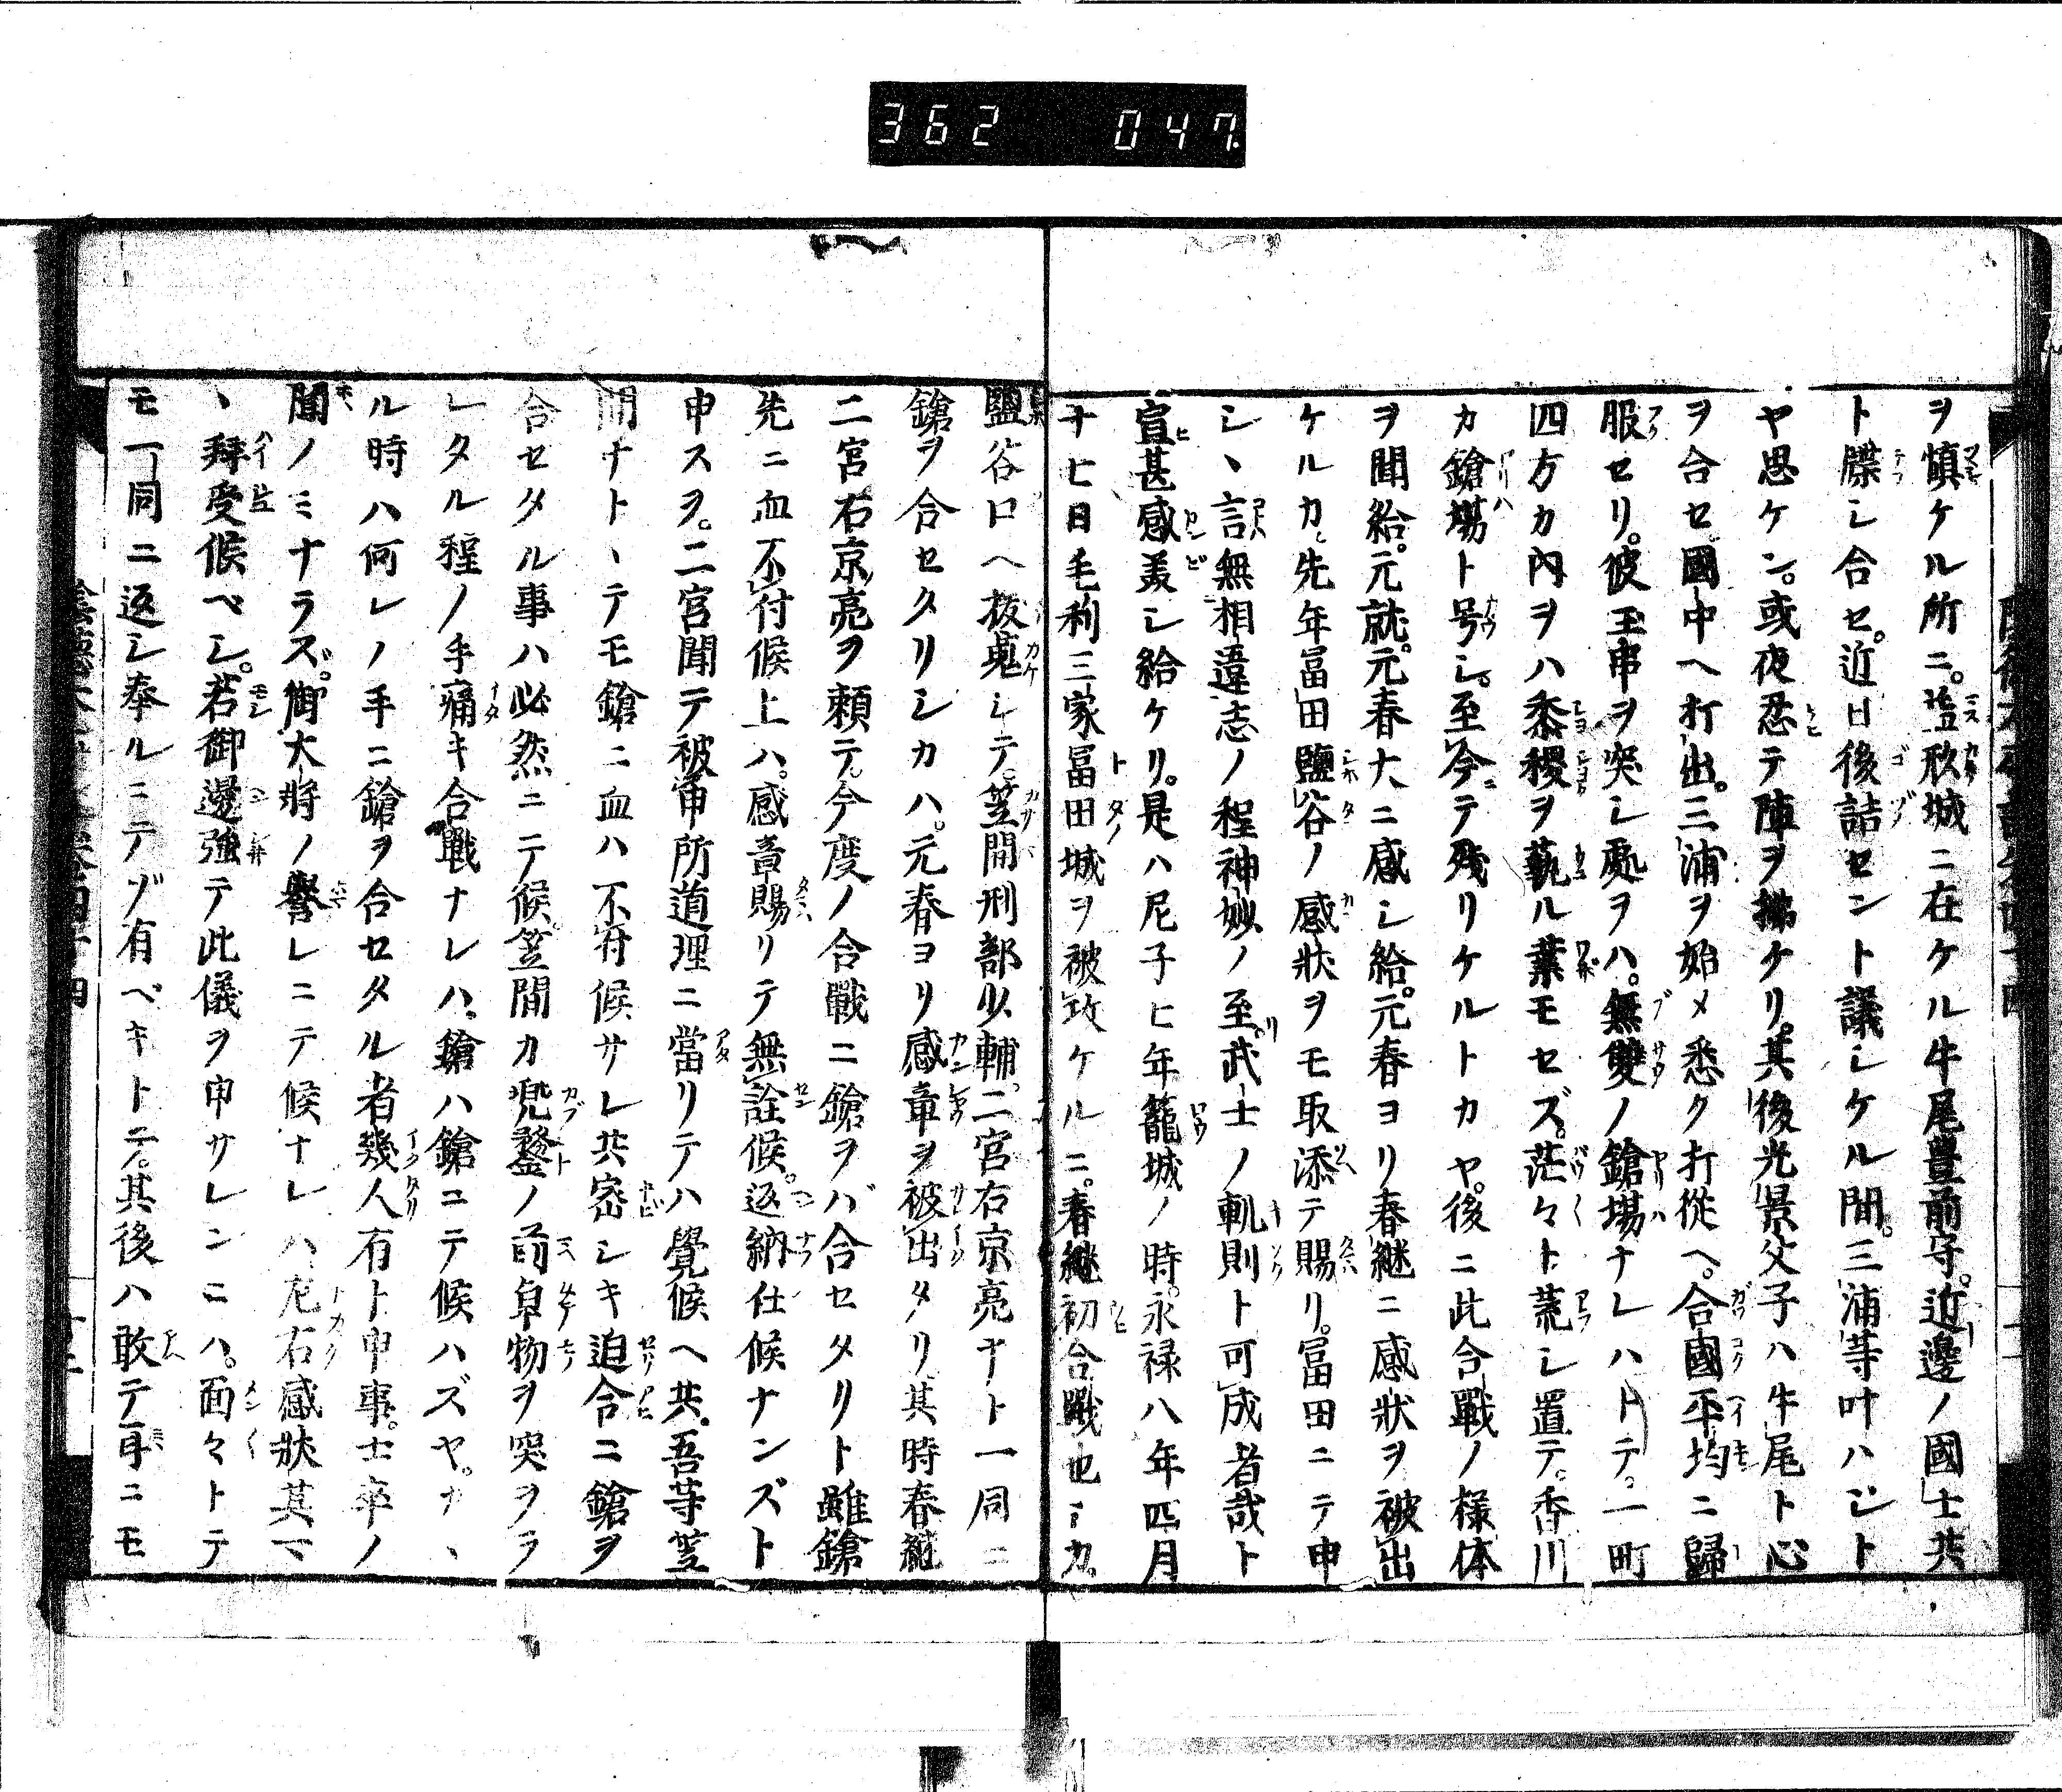 362 047
ヲ慎ケル所ニ。盬漑城ニ在ケル牛尾豊前守。近邊ノ國士共
ト牒シ合セ。近日後詰セント議シケル間。三浦等叶ハジト
ヤ思ケン。或夜忍テ陣ヲ拂ケリ。其後光景父子ハ牛尾ト心
ヲ合セ。國中ヘ打出。三浦ヲ始メ悉ク打從ヘ。合國平均ニ歸
服セリ。彼玉串ヲ突シ処ヲハ。無雙ノ鎗塲ナレハトテ。一町
四方カ内ヲハ黍稷ヲ藝ル業モセズ。茫々ト荒シ置テ。香川
カ鎗塲ト号シ。至今テ残リケルトカヤ。後ニ此合戰ノ様体
ヲ聞給。元就。元春大ニ感シ給。元春ヨリ春継ニ感狀ヲ被出
ケルカ。先年冨田鹽谷ノ感狀ヲモ取添テ賜リ。冨田ニテ申
シヽ言無相違志ノ程神妙ノ至。武士ノ軌則ト可成者哉ト
宣甚感美シ給ケリ。是ハ尼子ヒ年籠城ノ時。永禄八年四月
十七日毛利三家冨田城ヲ被攻ケルニ。春継初合戰也シカ。
鹽谷口ヘ抜蒐シテ。笠間刑部少輔。二宮右京亮ナト一同ニ
鎗ヲ合セタリシカハ。元春ヨリ感章ヲ被出タリ其時春継
二宮右京亮ヲ頼テ。今度ノ合戰ニ鎗ヲバ合セタリト雖鎗
先ニ血不付候上ハ。感章賜リテ無詮候。返納仕候ナンズト
申スヲ。二宮聞テ被申所道理ニ當リテハ覺候ヘ共。吾等笠
間ナトヽテモ鎗ニ血ハ不付候サレ共密シキ迫合ニ鎗ヲ
合セタル事ハ必然ニテ候。笠間カ兜鍪ノ前阜物ヲ突ヲラ
レタル程ノ手痛キ合戰ナレハ。鎗ハ鎗ニテ候ハズヤ。カヽ
ル時ハ何レノ手ニ鎗ヲ合セタル者幾人有ト申事。士卒ノ
聞ノミナラズ。御大將ノ譽レニテ候ナレハ。左右感狀其マ
ヽ拜受候ベシ。若御邊強テ此儀ヲ申サレンニハ。面々トテ
モ一同ニ返シ奉ルニテゾ有ベキトテ。其後ハ敢テ耳ニモ